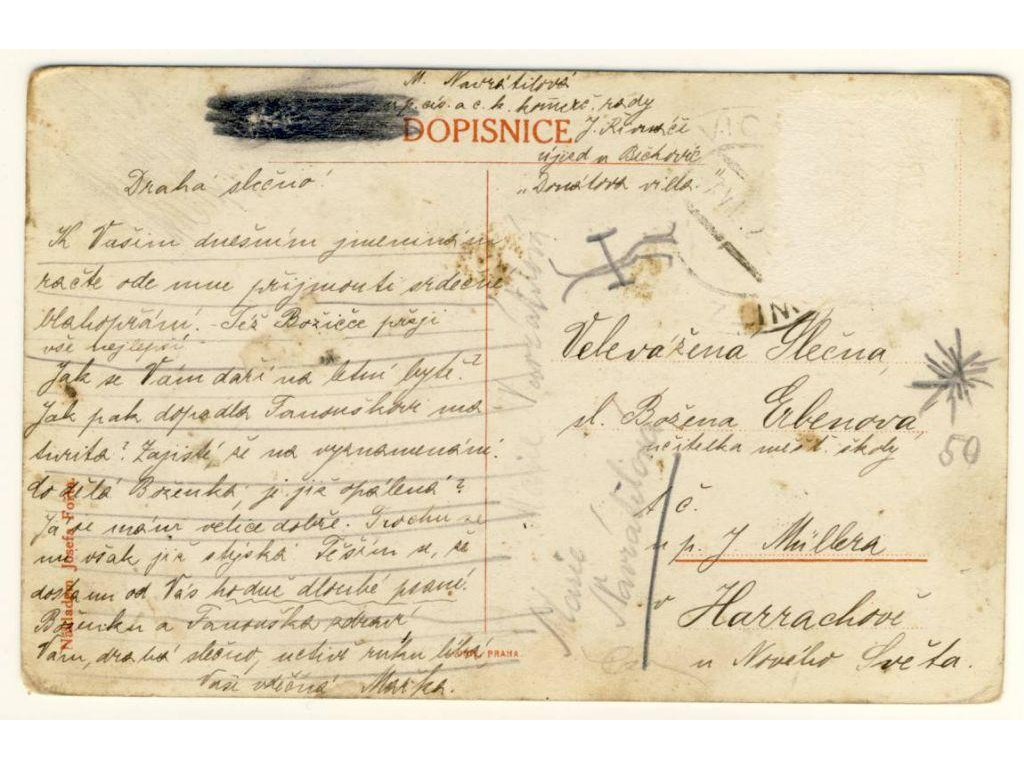 M. Navrátilová
p. cís. a c. k. komerč. rady
DOPISNICE
J. Řivnáče
újezd u Běchovic
"Donátova villa.
Drahá slečno!
K Vašim dnešním jmeninám
račte ode mne přijmouti srdečné
blahopřání. Též Božičce přeji
vše nejlepší.
Jak se Vám daří na letní bytě?
Jak pak dopadla Fanouškovi ma
turita? Zajisté že na vyznamenání.
Co dělá Boženka, je již opálená?
Já se mám velice dobře. Trochu se
mi však již stýská. Těším se, že
dostanu od Vás hodně dlouhé psaní.
Boženku a Fanouška zdraví
Vám, drahá slečno, uctivě ruku líbá
Vaše vděčná Mařka.
Velevážená Slečna,
sl. Božena Erbenova,
učitelka měšť. školy
t. č.
u p. J Müllera
v Harrachově
u Nového Světa.
50
Marie Navrátilová
Marie
Navrátilova
Nákladem Josefa
PRAHA.